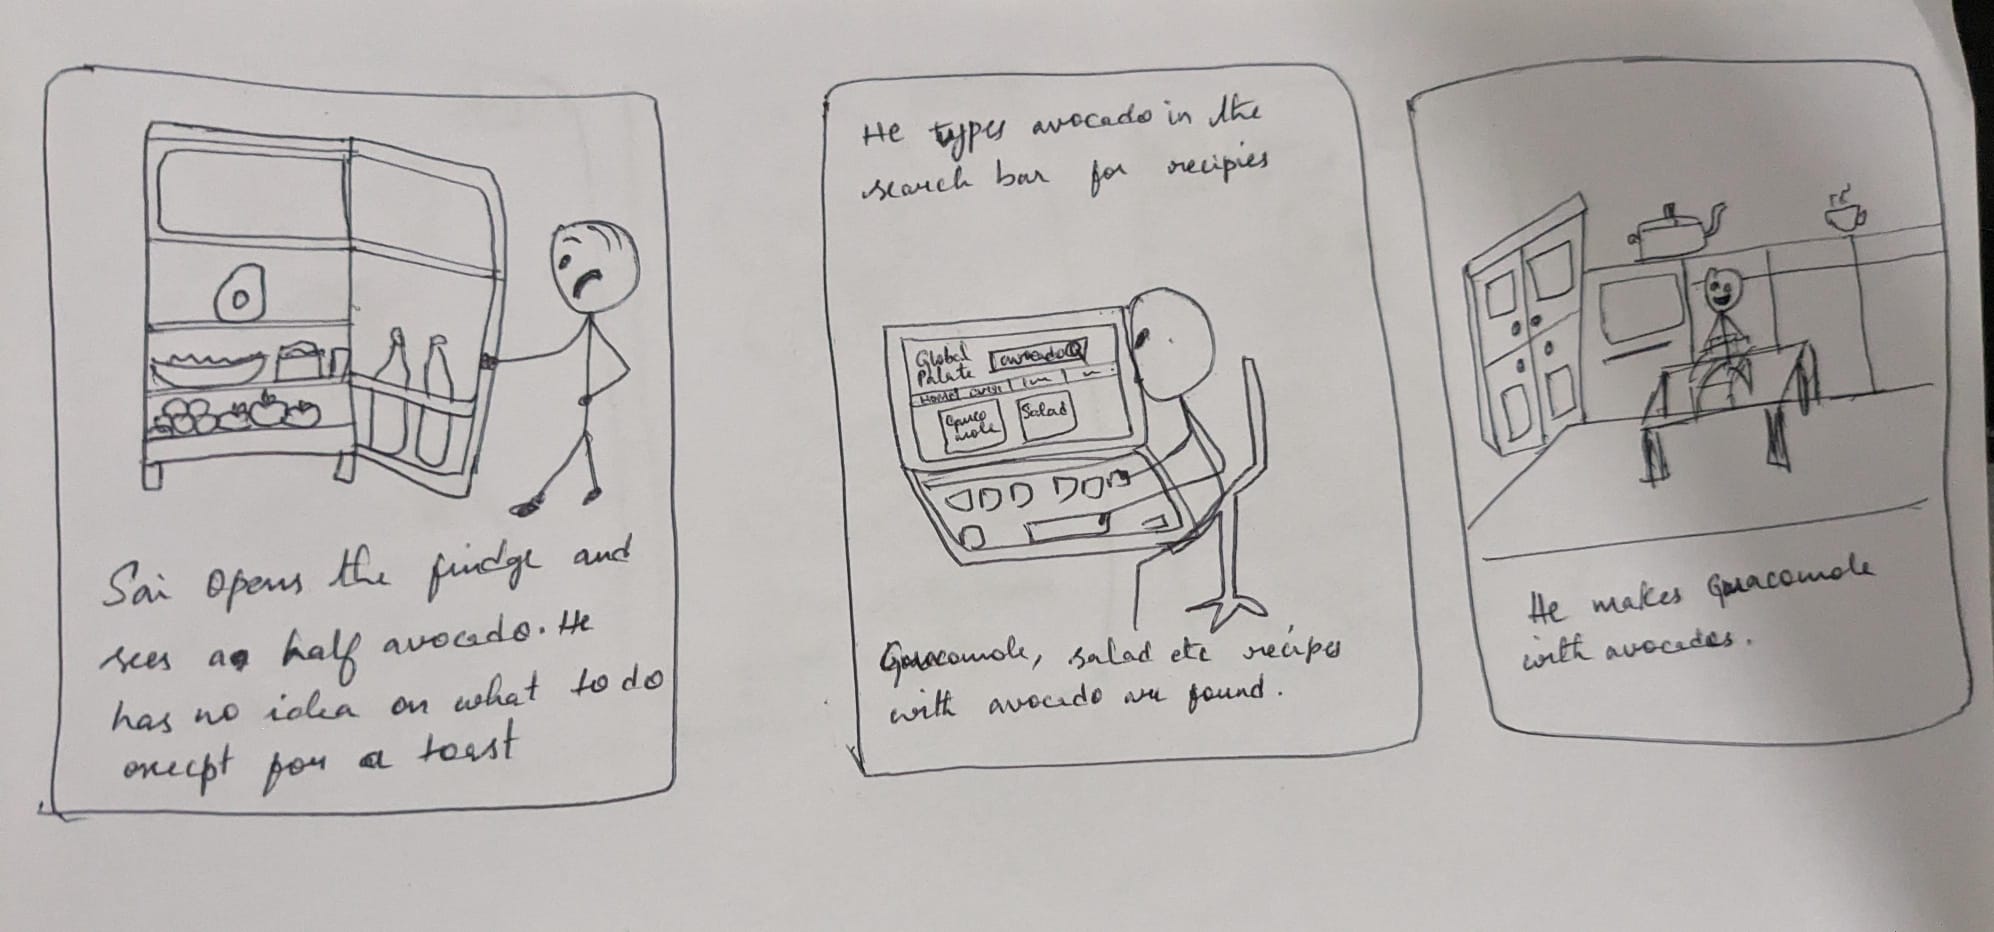 Sai opens the fridge and
sees a half avocado. He
has no idea on what to do
except for a toast
He types avocado in the
search bar for recipies
Global
Palate
avocado
Home
Salad
Guacomole, salad etc recipes
with avocado are found.
He makes Guacomole
with avocados.